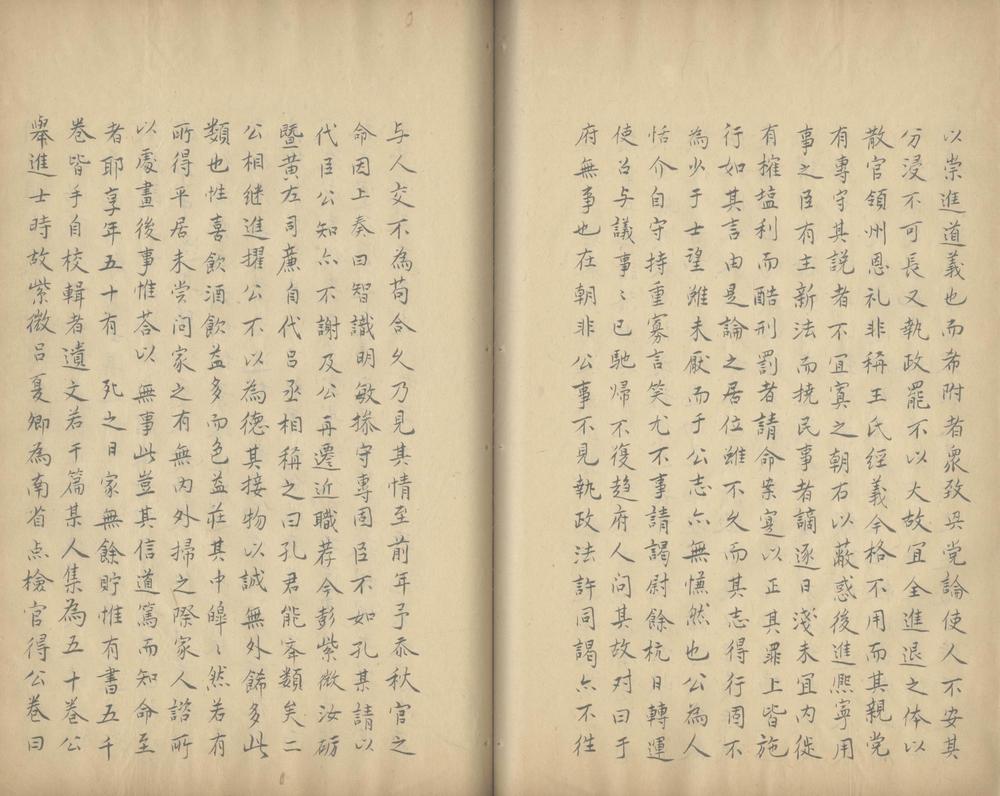 以崇進道義也而希附者衆致吳党論使人不安其
分浸不可長又執政罷不以大故宜全進退之体以
散官領州恩礼非稱王氏經義今格不用而其親党
有專守其説者不宜寘之朝右以蔽惑後進熈寧用
事之臣有主新法而撓民事者謫逐日淺未宜内徙
有搉塩利而酷刑罰者請命案寔以正其罪上皆施
行如其言由是論之居位雖不久而其志得行固不
為少于士望雖未厭而于公志亦無慊然也公為人
恬介自守持重寡言笑尤不事請謁尉餘杭日轉運
使召与議事〻已馳帰不復趍府人问其故対曰于
府無事也在朝非公事不見執政法許同謁亦不徃
与人交不為苟合久乃見其情至前年予忝秋官之
命因上奏曰智識明敏掾守專固臣不如孔某請以
代臣公知亦不謝及公再遷近職荐今彭紫微汝砺
曁黄左司亷自代吕丞相稱之曰孔君能牽類矣二
公相継進擢公不以為德其接物以誠無外餙多此
類也性喜飲酒飲益多而色益莊其中皞〻然若有
所得平居未尝问家之有無内外掃之際家人諮所
以處畫後事惟荅以無事此豈其信道篤而知命至
者耶享年五十有 死之日家無餘貯惟有書五千
巻皆手自校輯者遺文若干篇某人集為五十巻公
舉進士時故紫微吕夏卿為南省点檢官得公巻曰